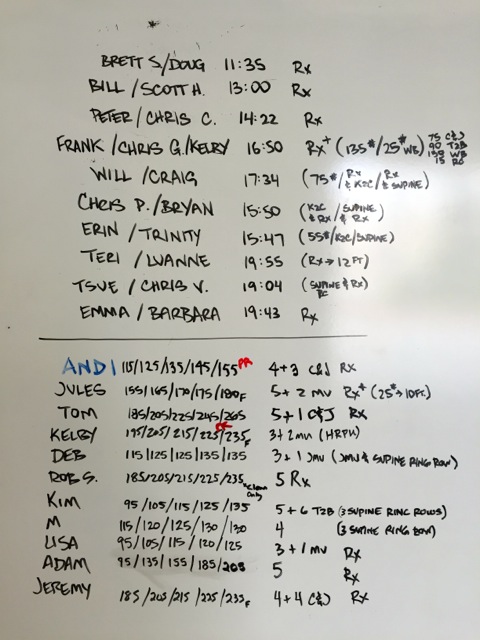 BRETT S./DOUG 11:35 Rx
BILL/SCOTT H. 13:00 Rx
PETER/CHRIS C. 14:22 Rx
FRANK/CHRIS G./KELBY 16:50 Rx+ (135#/25# WB) 75 C&J 90 T2B 150 WB 15 RC
WILL/CRAIG 17:34 (75#/Rx & K2C/Rx & SUPINE)
CHRIS P./BRYAN 15:50 (K2C & Rx/SUPINE & Rx)
ERIN/TRINITY 15:47 (55#/K2C/SUPINE)
TERI/LUANNE 19:55 (Rx→12 FT)
TSUE/CHRIS V. 19:04 (SUPINE & Rx) RC
EMMA/BARBARA 19:43 Rx
ANDI 115/125/135/145/155 PR 4+3 C&J Rx
JULES 155/165/170/175/180F 5+2 MU Rx+ (25#→10FT.)
TOM 185/205/225/245/265 5+1 C&J Rx
KELBY 195/205/215/225 PR/235F 3+2MU (HRPU)
DEB 115/125/125/135/135 3+1 JMU (JMU & SUPINE RING ROW)
ROB S. 185/205/215/225/235 *Clean Only 5 Rx
KIM 95/105/115/125/135 5+6 T2B (3 SUPINE RING ROWS)
M 115/120/125/130/130 4 (3 SUPINE RING ROW)
LISA 95/105/115/120/125 3+1 MU Rx
ADAM 95/135/155/185/205 5 Rx
JEREMY 185/205/215/225/235F 4+4 C&J Rx